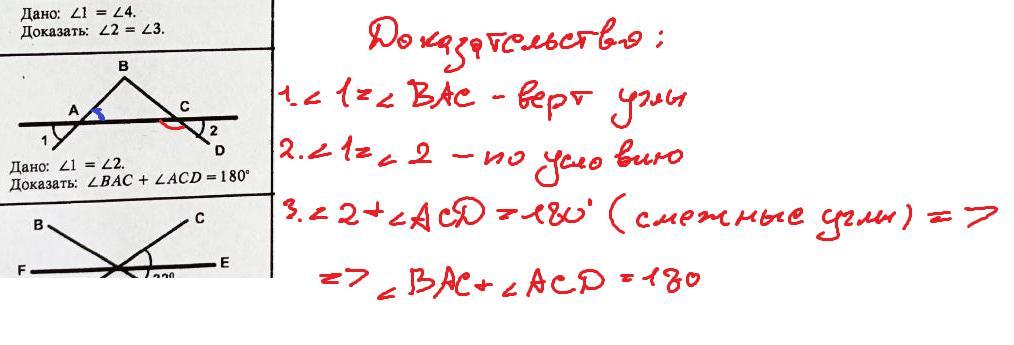 Дано: ∠1 = ∠4.
Доказать: ∠2 = ∠3.
B
A
C
1
2
D
Дано: ∠1 = ∠2.
Доказать: ∠BAC + ∠ACD = 180°
B
C
F
E
Доказательство:
1.∠1=∠BAC - верт углы
2.∠1=∠2 - по условию
3.∠2+∠ACD=180° (смежные углы) =>
=>∠BAC+∠ACD=180